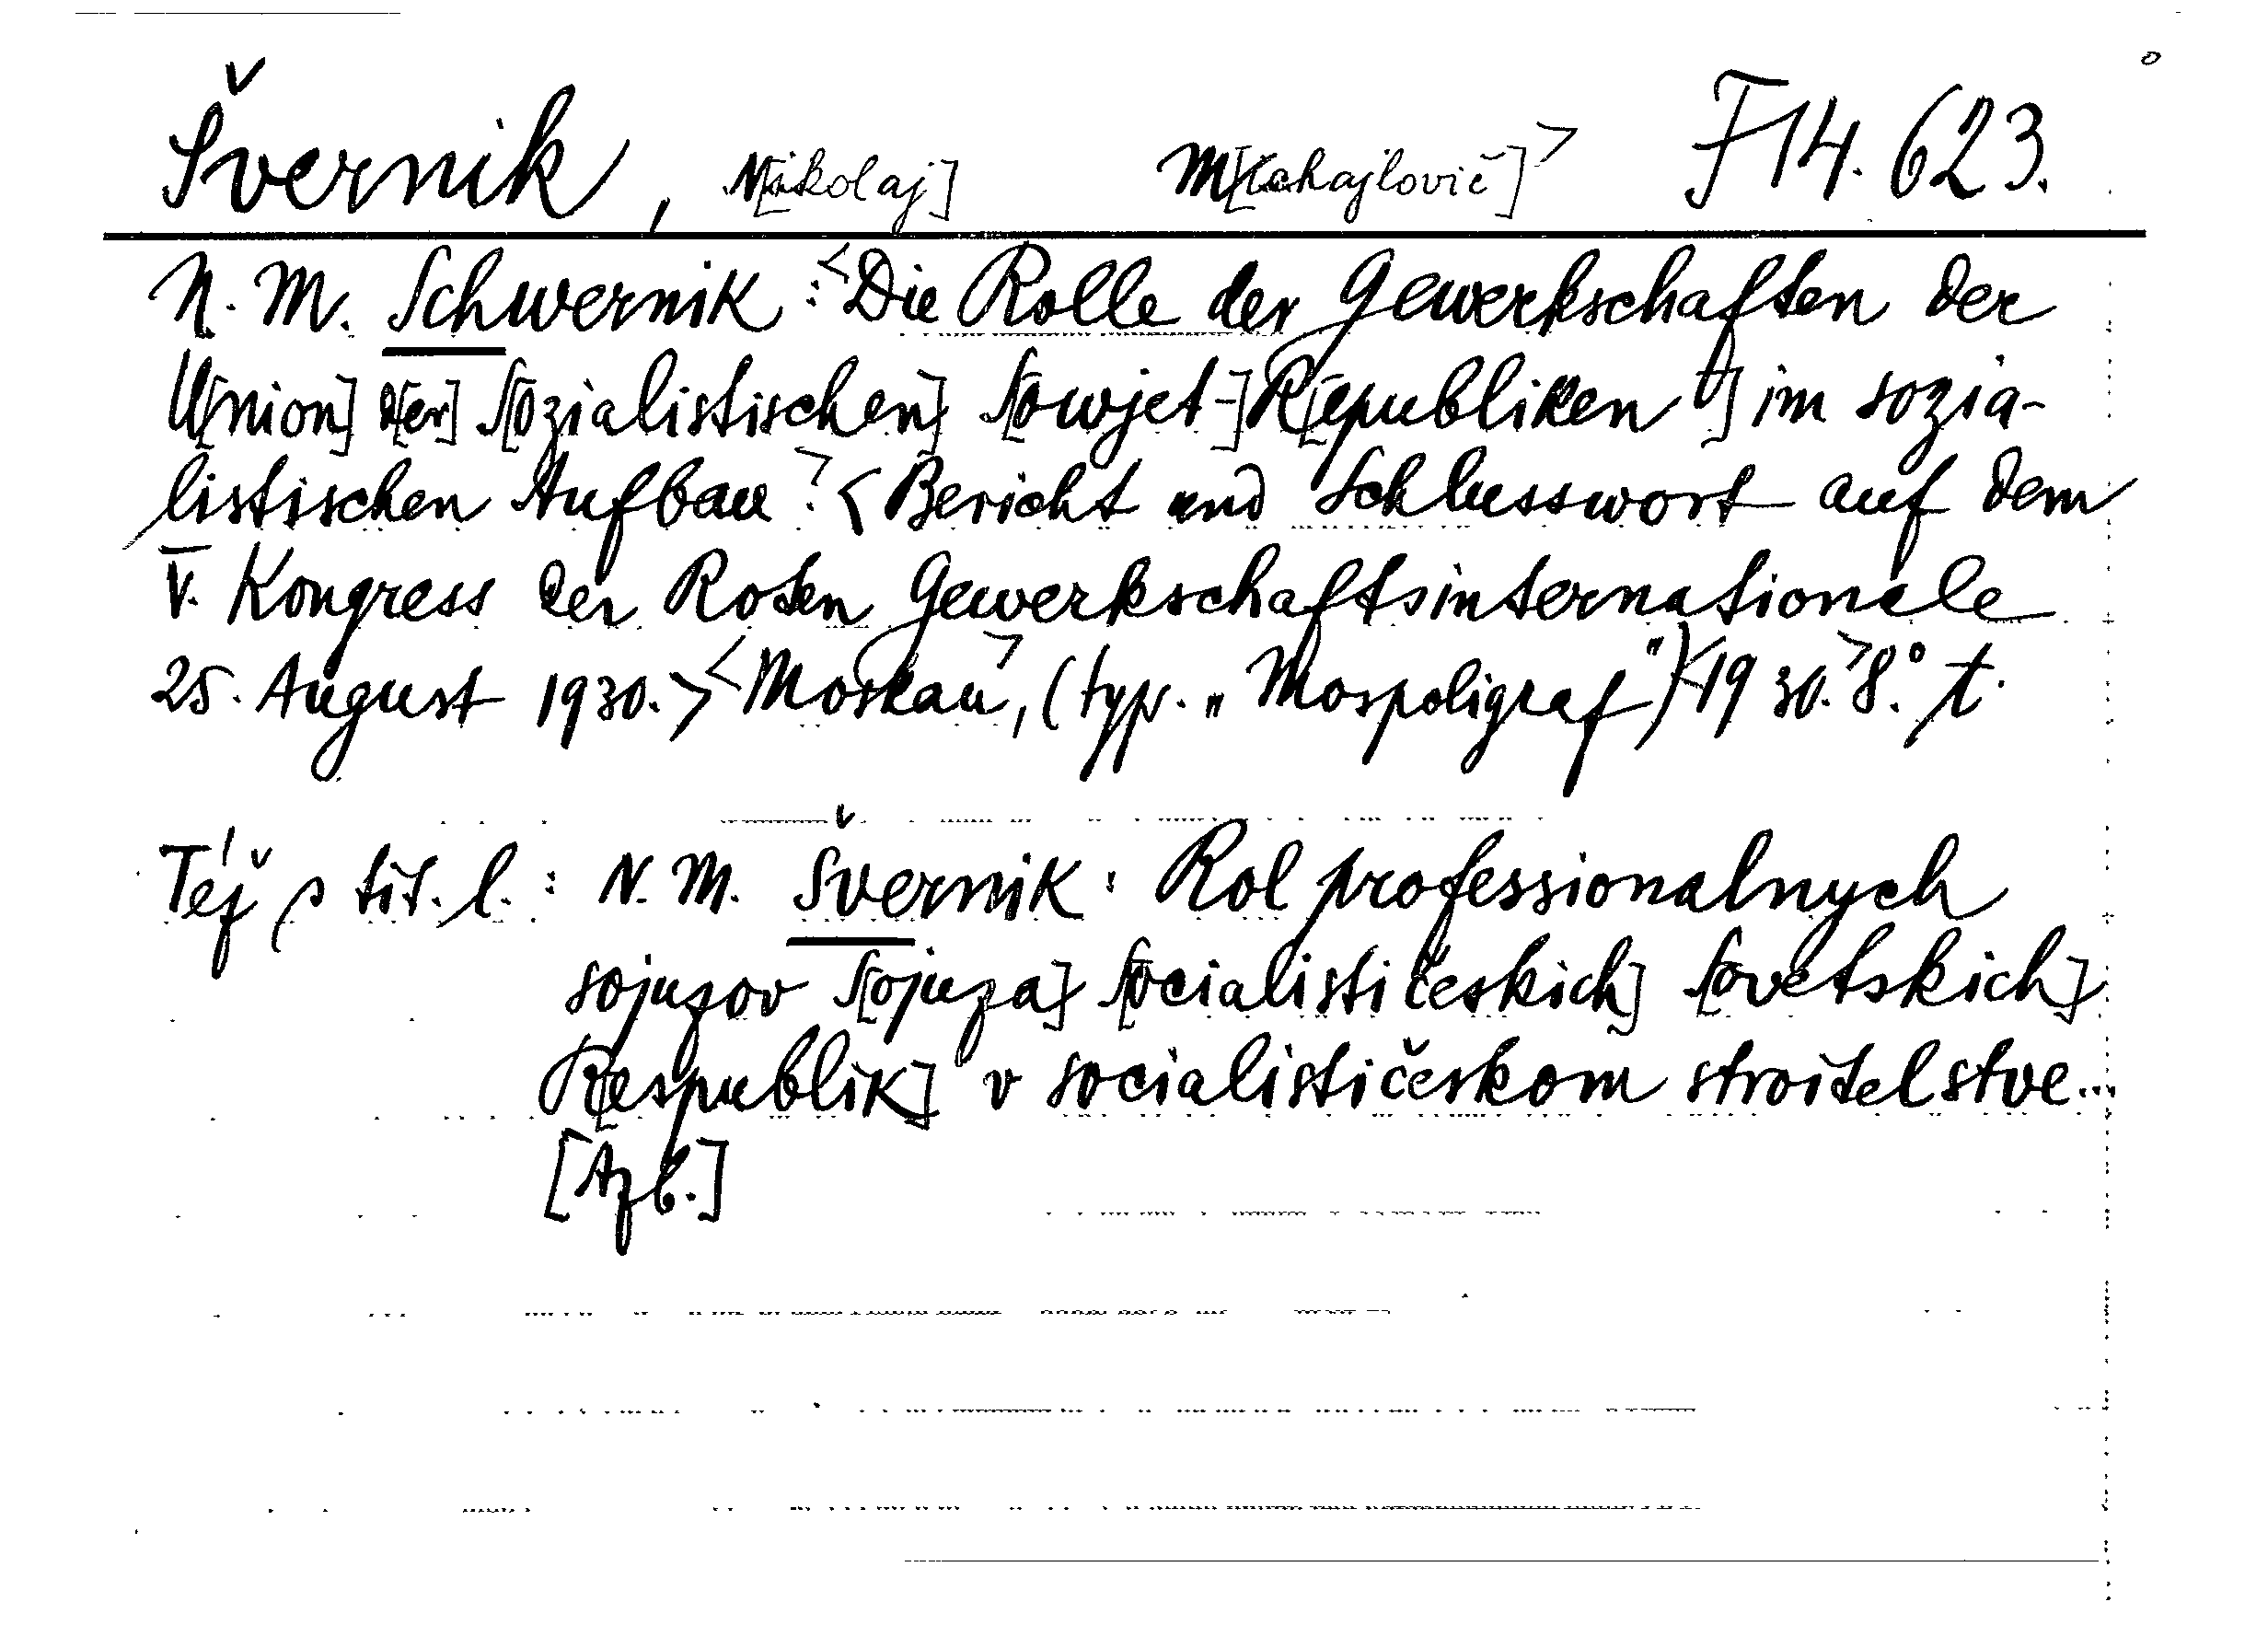 Švernik, N[ikolaj] M[ichajlovič]> F 14.623.
N. M. Schwernik: <Die Rolle der Gewerkschaften der
U[nion] d[er] S[ozialistischen] S[owjet-] R[epubliken] im sozia-
listischen Aufbau.> <Bericht und Schlusswort auf dem
V. Kongress der Roten Gewerkschaftsinternationale
25. August 1930.> <Moskau>, (typ. „Mospoligraf") <1930.> 8.° t.
Též s tit. l.: N. M. Švernik: Rol professionalnych
sojuzov S[ojuza] S[ocialističeskich] S[ovetskich]
R[espublik] v socialističeskom stroitelstve...
[Azb.]